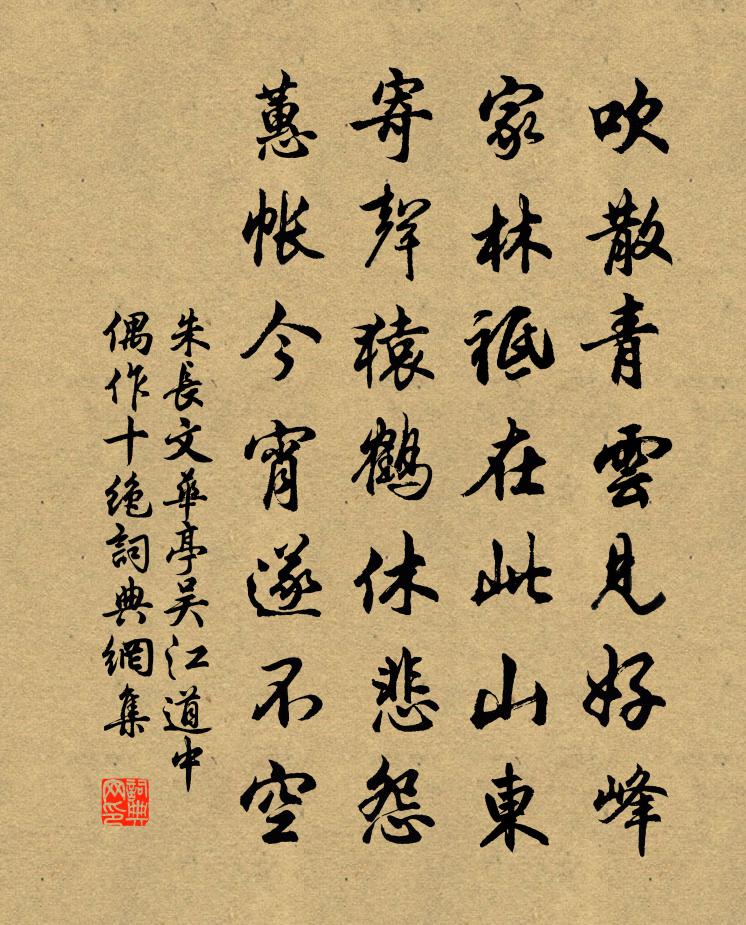 吹散青雲見好峰
家林祗在此山東
寄聲猿鶴休悲怨
蕙帳今宵遂不空
朱長文華亭吴江道中
偶作十絶詞典網集
詞典网印